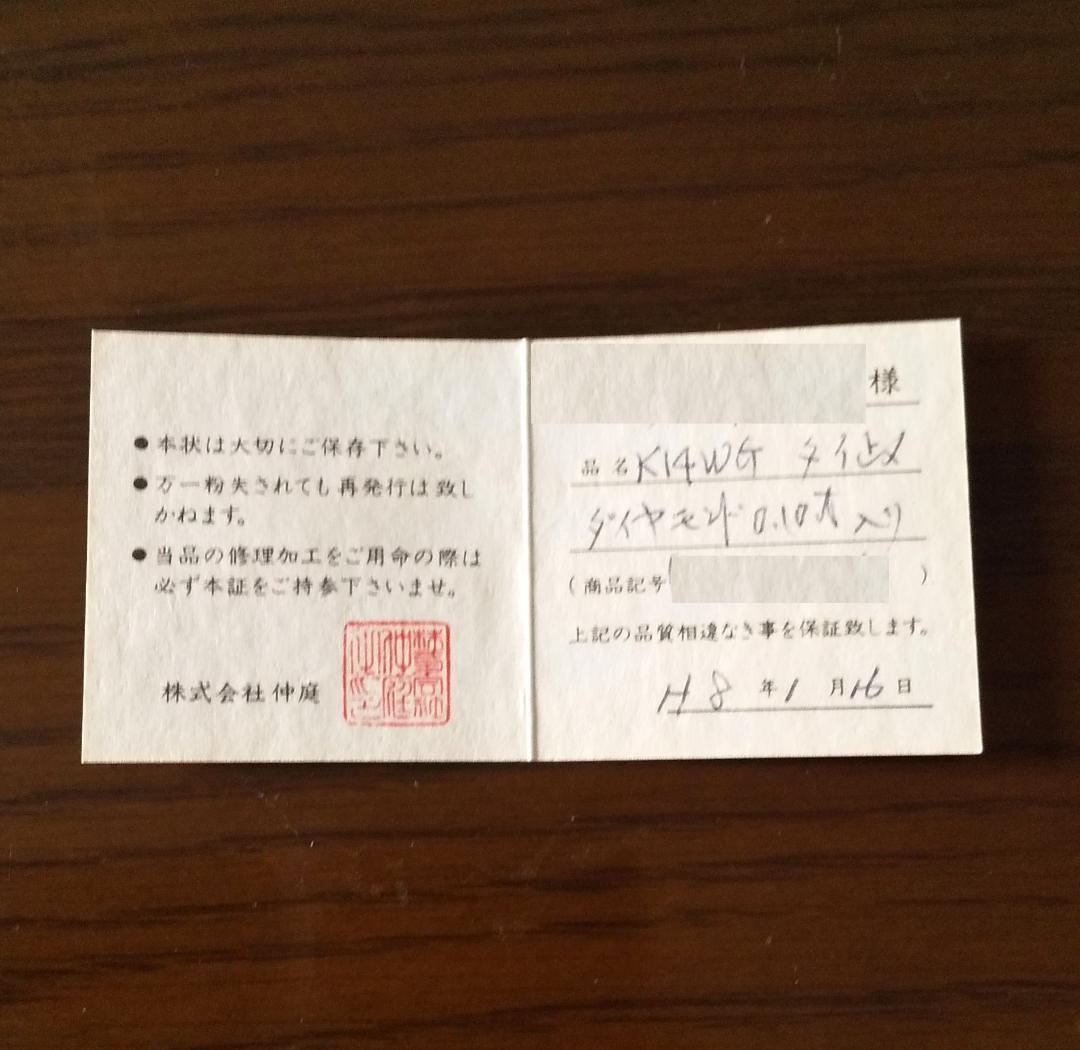 ●本状は大切にご保存下さい。
●万一粉失されても再発行は致し
かねます。
●当品の修理加工をご用命の際は
必ず本証をご持参下さいませ。
株式会社仲庭
様
品名 K14WG タイ止メ
ダイヤモンド 0.10 入り
(商品記号 )
上記の品質相違なき事を保証致します。
H8年1月16日